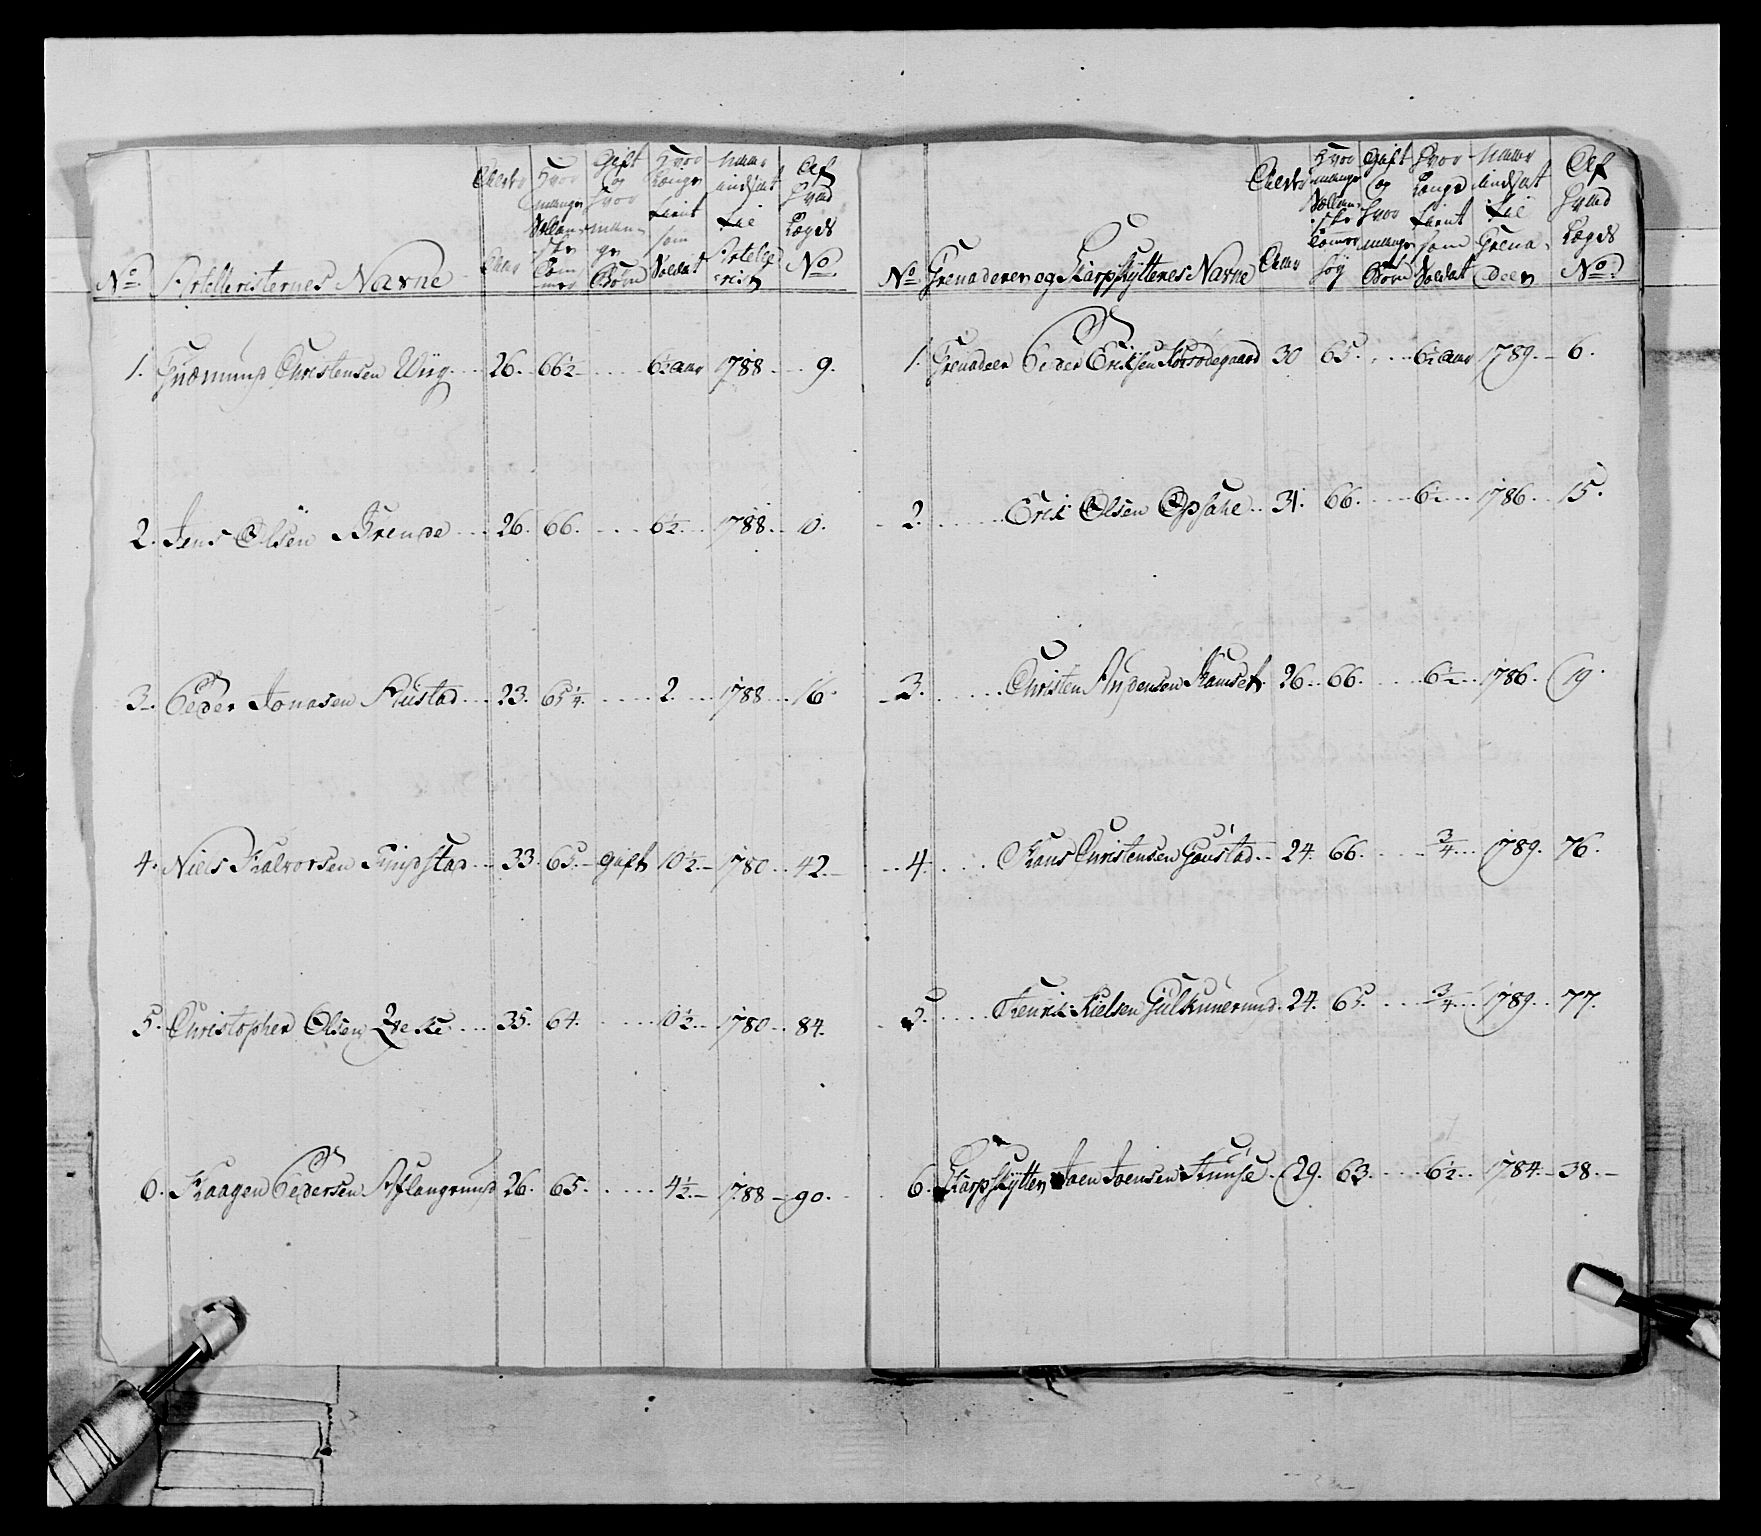 No. Artelleristernes Navne
Alder Aar
Hvor mange Sællandske Tommer
Gift og hvor mange Børn
Hvor Længe tient som Soldat
Naar indsat til Artelle rist
Af Hvad Lægds No
1. Gudmund Christensen Wiig 26. 66½ 6½ aar 1788 9.
2. Jens Olsen Brende 26. 66. 6½ 1788. 10.
3. Peder Jonasen Rustad 23. 65¼. 2. 1788 16.
4. Niels Halvorsen 33. 65. gift 10½ 1780 42.
5. Christopher Olsen 35. 64. 10½ 1780 84.
6. Haagen Pedersen Aslangrund 26. 65. 4½ 1788 90.
No Grenaderer og Skarpskytteres Navne
Alder Aar
Hvor mange Tommer høy
Gift og hvor mange Børn
Hvor Længe tient som Soldat
Naar indsat til Grenadeer
Af Hvad Lægds No.
1. Grenadeer Peder Erichsen 30 65. 6½ aar 1789. 6.
2. Erik Olsen Opsahe 31. 66. 6½ 1786. 15.
3. Christen Andersen Ramset 26. 66. 6½ 1786. 19.
4. Hans Christensen Goustad 24. 66. ¾ 1789. 76.
5. Henrik Nielsen Gulkunerund 24. 65. ¾ 1789. 77.
6. Skarpskytter Joen Joensen 29. 63. 6½ 1784. 38.